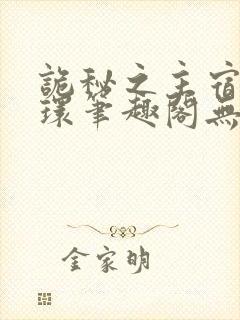 詭秘之主宿
環筆趣閣無
金家明